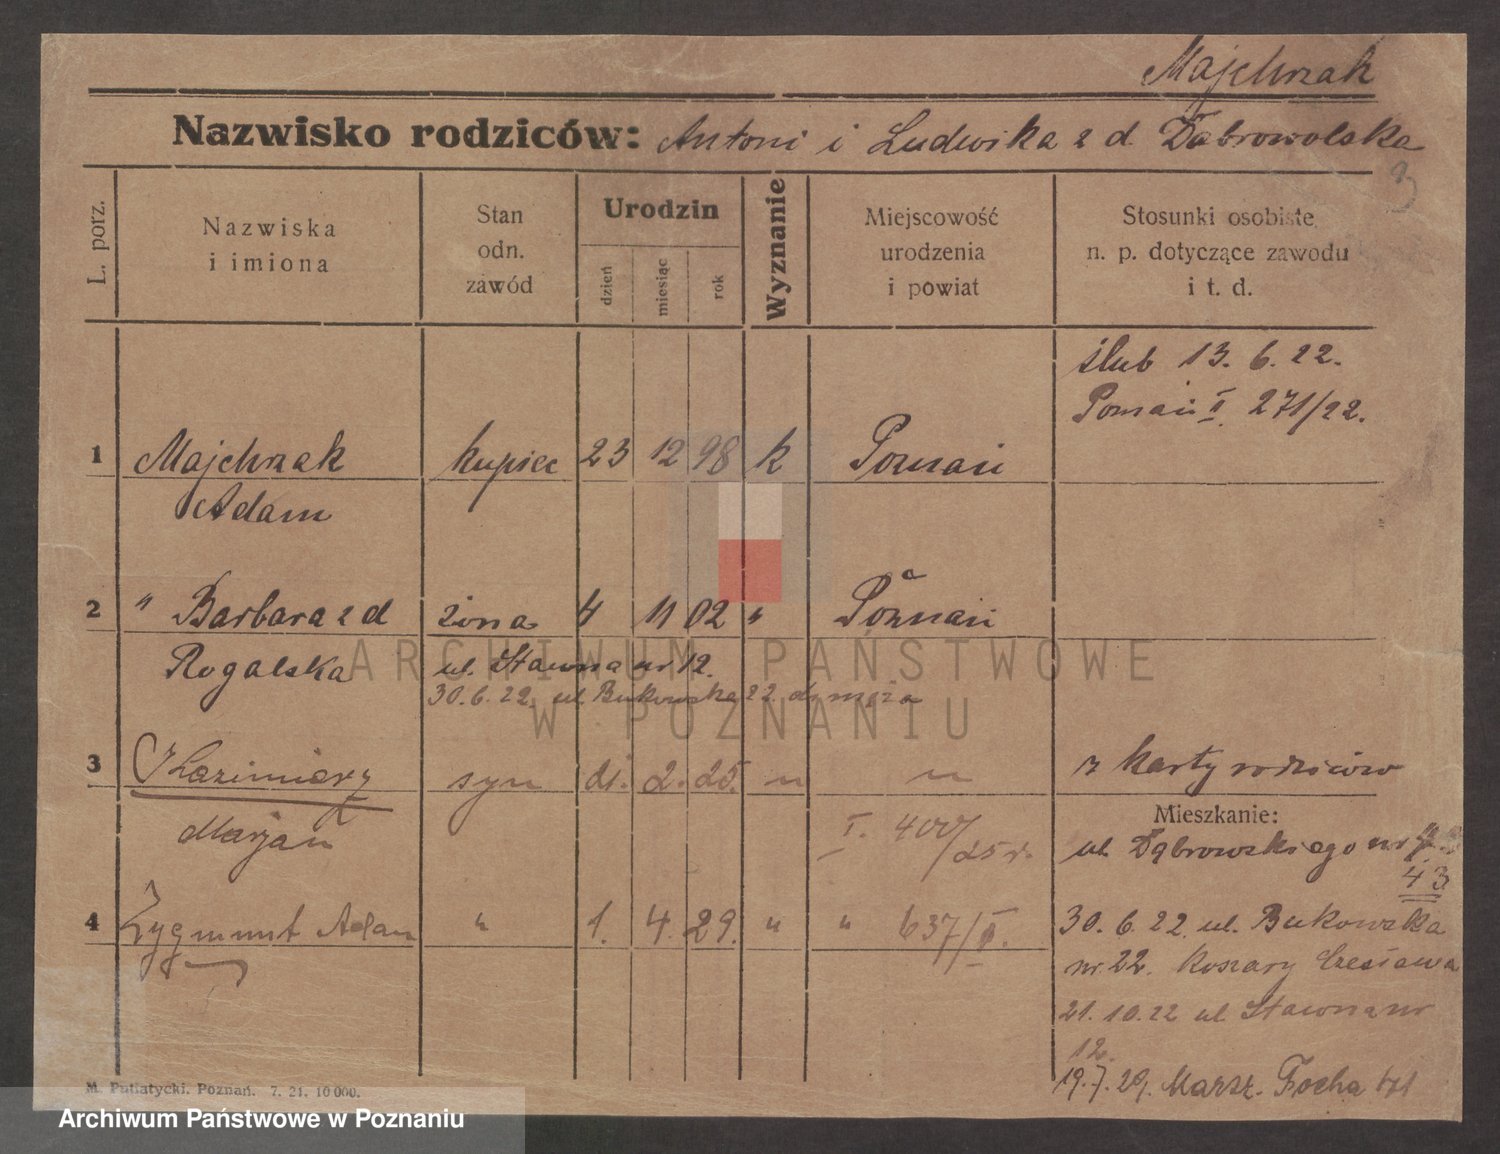 Majchrzak
Nazwisko rodziców: Antoni i Ludwika z d. Dąbrowolska
L. porz.
Nazwiska
i imiona
Stan
odn.
zawód
Urodzin
dzień
miesiąc
rok
Wyznanie
Miejscowość
urodzenia
i powiat
Stosunki osobiste
n. p. dotyczące zawodu
i t. d.
ślub 13. 6. 22.
Poznań II. 271/22.
1 Majchrzak kupiec 23 12 98 k Poznań
Adam
2 " Barbara z d żona 4 11 02 " Poznań
Rogalska ul. Stawna nr 12.
30. 6. 22. ul. Bukowska 22. do męża
3 Kazimierz syn 21. 2. 25. " " z karty rodziców
Marjan I. 400/25 r.
Mieszkanie:
ul. Dąbrowskiego nr
43
4 Zygmunt Adam " 1. 4. 29. " " 637/II.
30. 6. 22. ul. Bukowska
nr. 22. Koszary
21. 10. 22 ul Stawna nr
12.
19. 7. 29. Marsz. Focha
M. Putiatycki. Poznań. 7. 21. 10 000.
ARCHIWUM PAŃSTWOWE
W POZNANIU
Archiwum Państwowe w Poznaniu